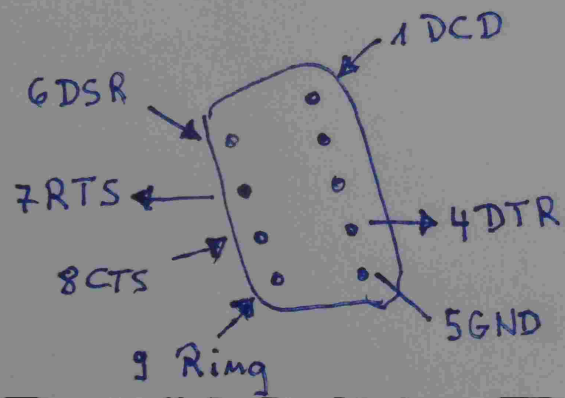 1 DCD
6 DSR
7 RTS
4 DTR
8 CTS
5 GND
9 Ring